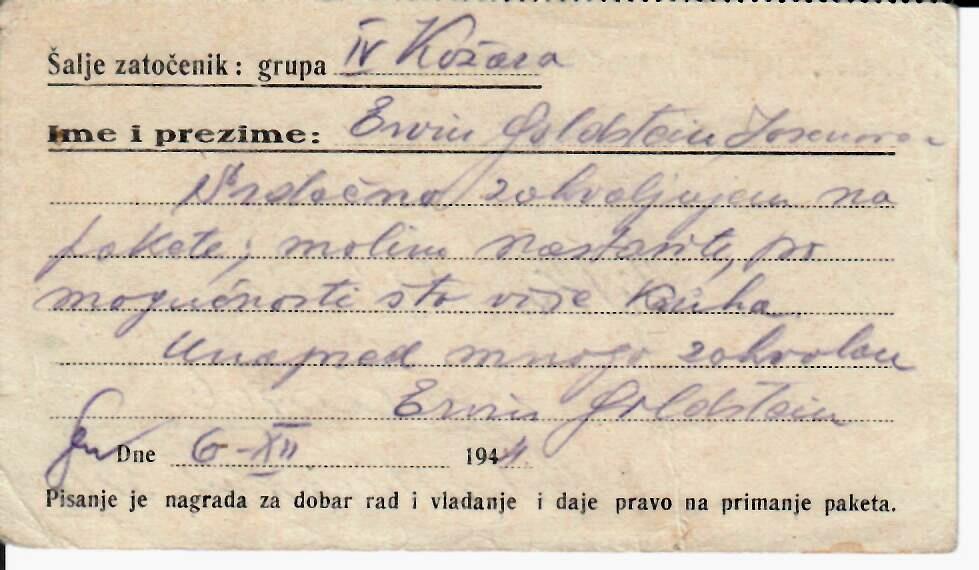 Šalje zatočenik: grupa IV Kožara
Ime i prezime: Ervin Goldstein
Srdačno zahvaljujem na
pakete; molim nastavite, po
mogućnosti sto više Kruha
Unapred mnogo zahvalan
Ervin Goldstein
Dne 6-XII 1944
Pisanje je nagrada za dobar rad i vladanje i daje pravo na primanje paketa.